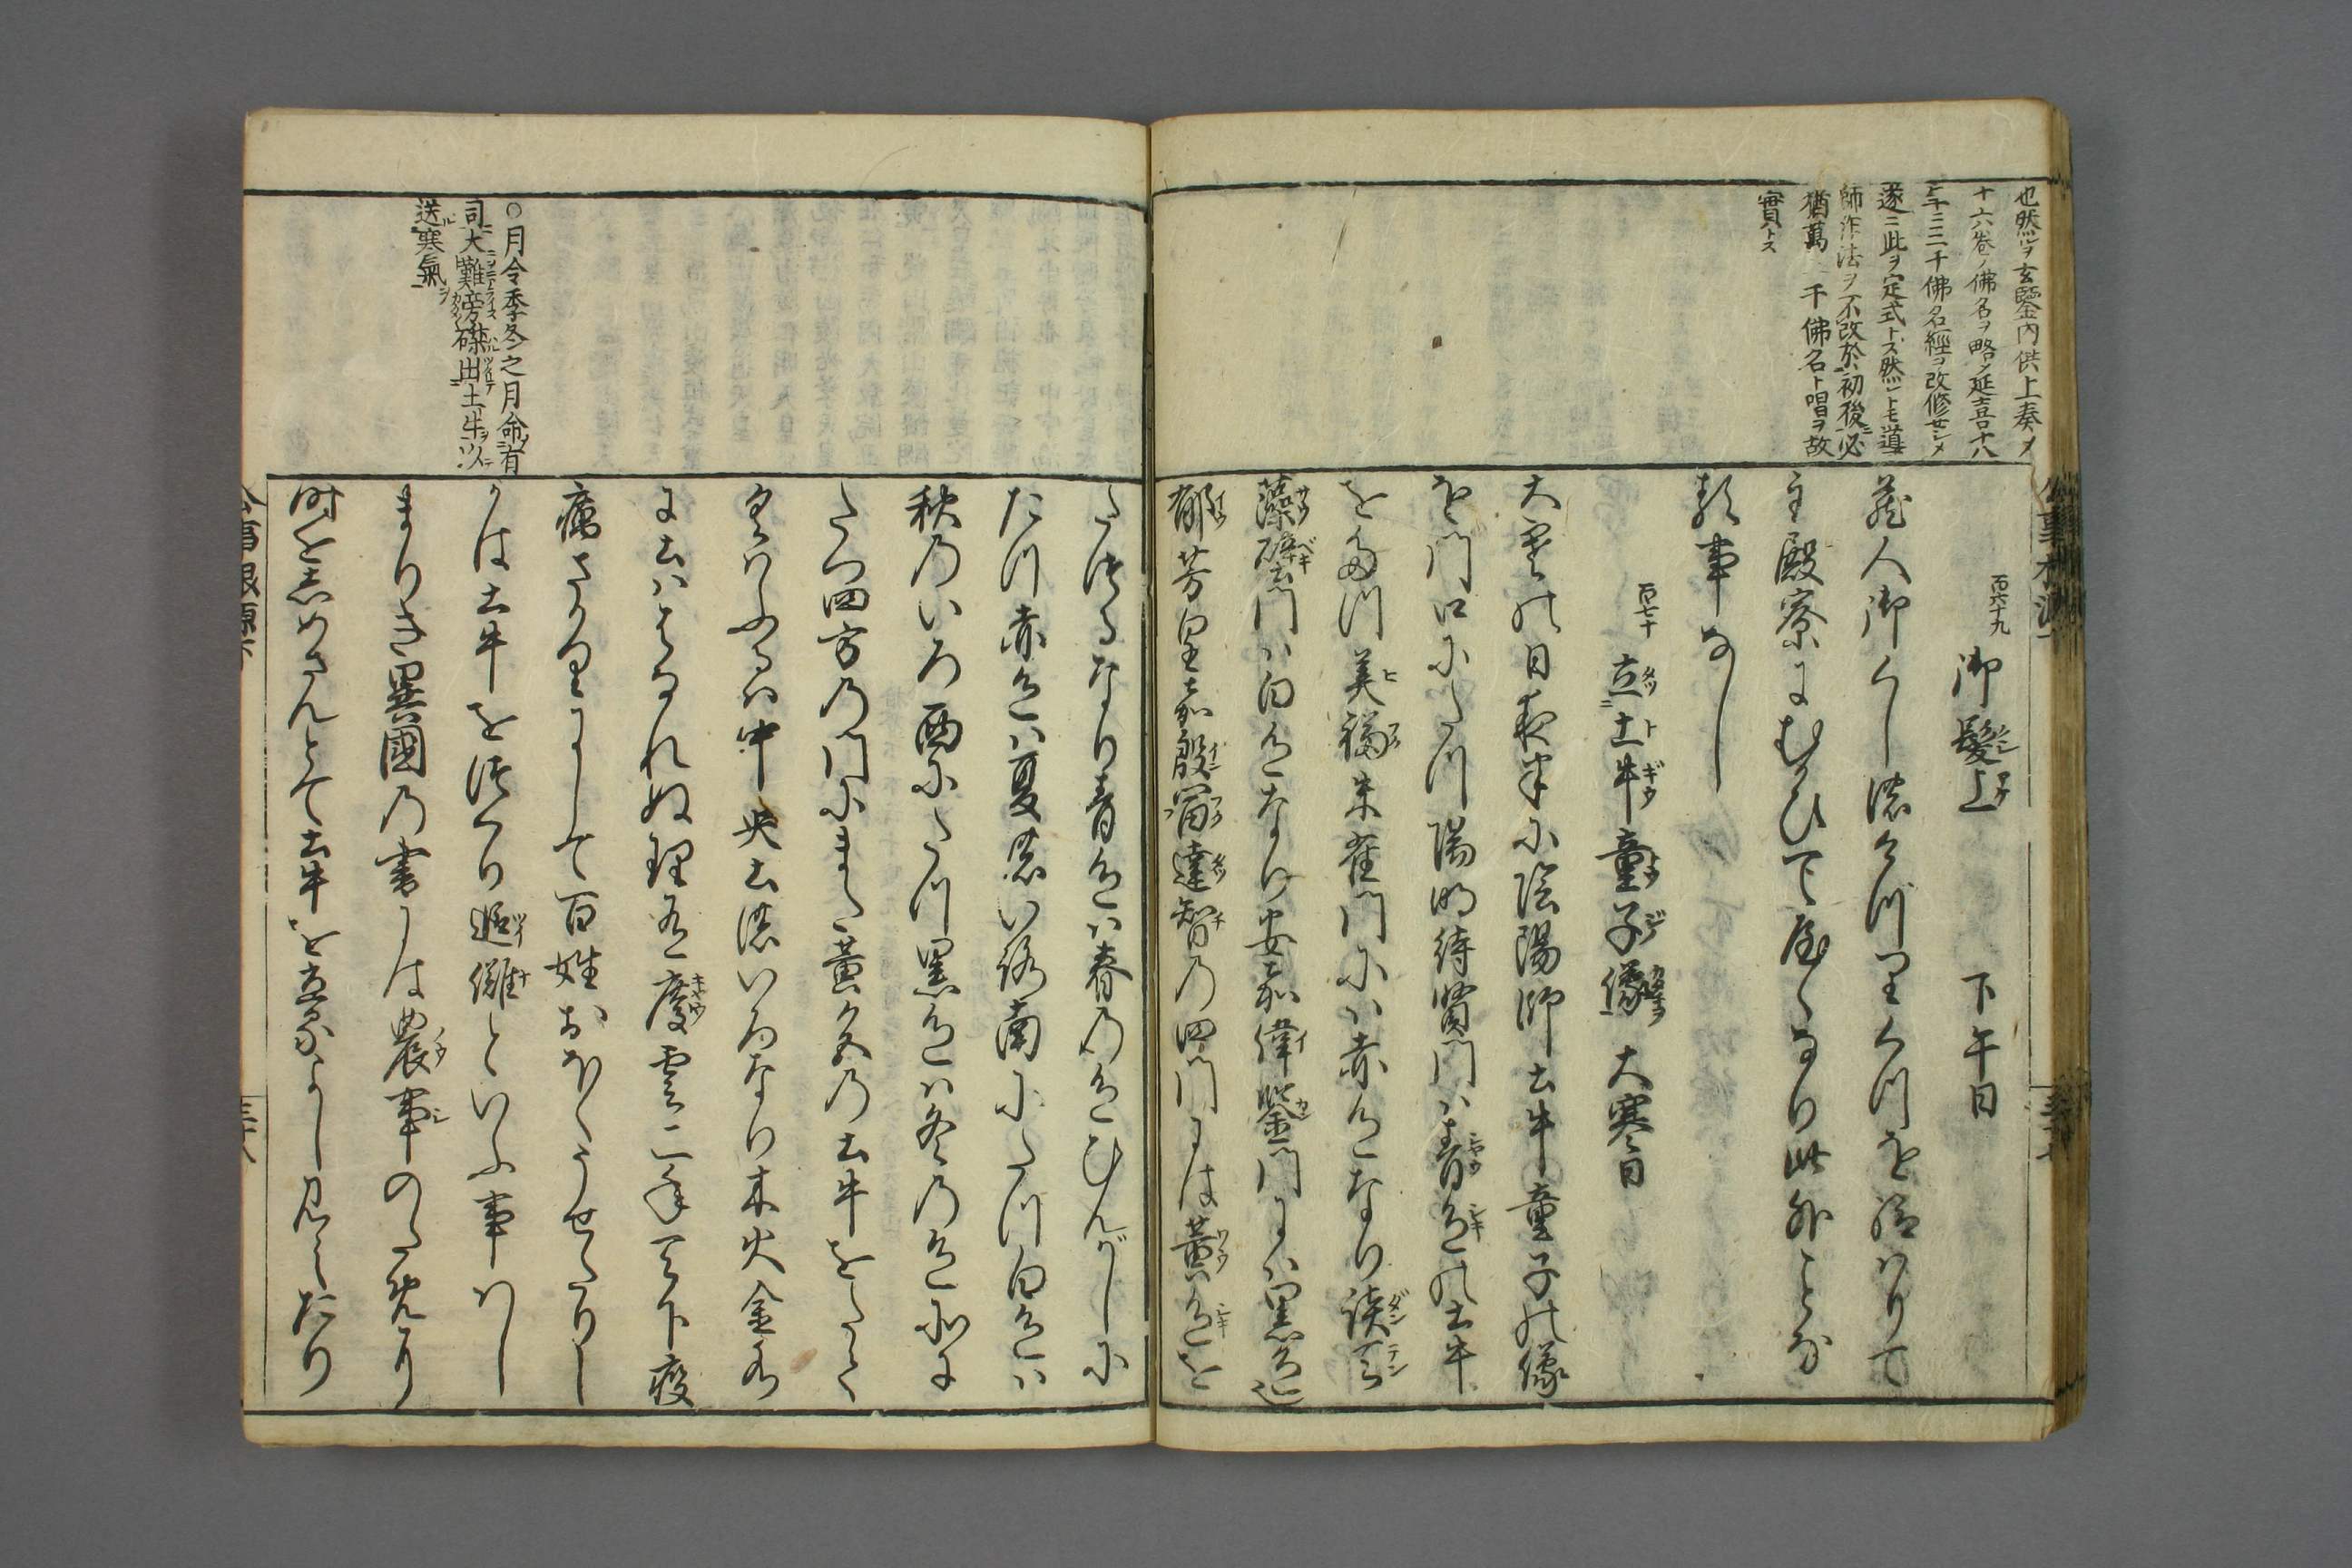 也然ルヲ玄鑒內供上奏メ
十六卷ノ佛名ヲ略メ延喜十八
年ニ三千佛名經ヲ改修セシメ
遂ニ此ヲ定式トス然レトモ導
師作法ヲ不改於初後ニ必
猶萬三千佛名ト唱ヲ故
實トス
百六十九 御髮上 下午日
藏人御くし濃けつりくつを給はりて
主殿寮にむかひて屋くなり此外ことな
る事なし
百七十 立土牛童子像 大寒日
大寒の日夜半に陰陽師土牛童子の像
を門口にたつ陽明待賢門ハ青色の土牛
をたつ美福朱雀門にハ赤色なり談天
藻壁門ハ白色なり安嘉偉鑒門にハ黑色這
郁芳皇嘉殷富達智の四門には黃色を
たつるなり青色ハ春の色ひんがしに
たつ赤色ハ夏のいろ南にたつ白色ハ
秋のいろ西にたつ黑色ハ冬の色北に
たつ四方の門にまた黃色の土牛をたて
くはふるハ中央土のいろなり木火金水
に土ハはなれぬ理有慶雲二年天下疫
癘さかりにして百姓おほくうせたりし
かは土牛をつくり追儺といふ事はし
まりき異國の書には農事のたねより
時をしめさんとて土牛を立るよし見えたり
○月令季冬之月命有
司大難旁磔出土牛以
送寒氣
公事根源下